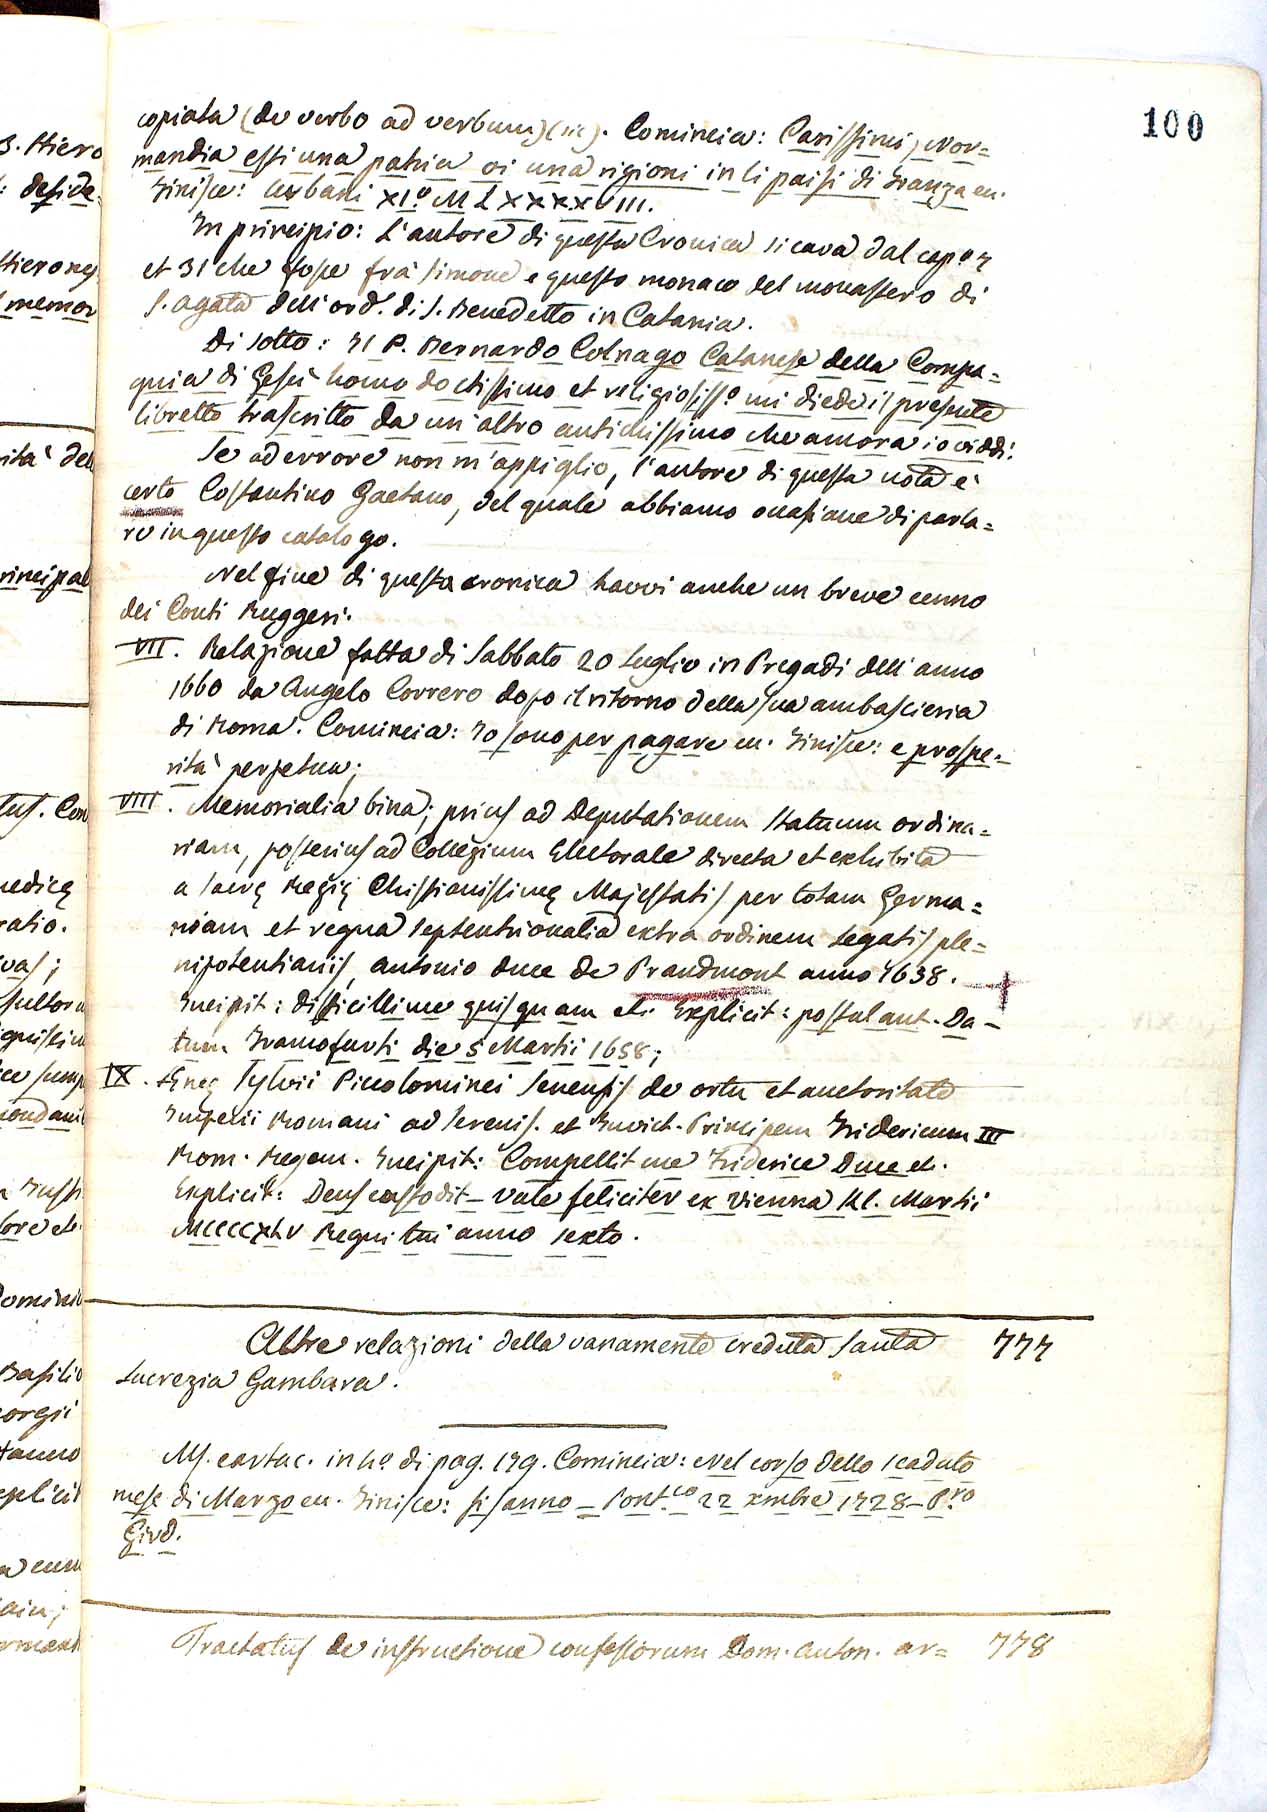 100
copiata (de verbo ad verbum) (sic). Comincia: Carissimi, Nor=
mandia esti una patria oi una rigioni in li paisi di Franza ec.
Finisce: Urbani XI.º M LXXXXVIII.
In principio: L'autore di questa Cronica si cava dal cap.º 7
et 31 che fosse frà Simone e questo monaco del monastero di
S. Agata dell'ord. di S. Benedetto in Catania.
Di sotto: Il P. Bernardo Colnago Catanese della Compa=
gnia di Gesù homo doctissimo et religiosiss.º mi diede il presente
libretto trascritto da un altro antichissimo che ancora io viddi.
Se ad errore non m'appiglio, l'autore di questa nota è
certo Costantino Gaetano, del quale abbiamo occasione di parla=
re in questo catalogo.
Nel fine di questa cronica havvi anche un breve cenno
dei Conti Ruggeri.
VII. Relazione fatta di Sabbato 20 Luglio in Pregadi dell'anno
1660 da Angelo Correro dopo il ritorno della sua ambascieria
di Roma. Comincia: Io sono per pagare ec. Finisce: e prospe=
rità perpetua;
VIII. Memorialia bina; prius ad Deputationem statuum ordina=
riam, posterius ad Collegium Electorale directa et exhibita
a sacrę Regię Chistianissimę Majestatis per totam Germa=
niam et regna septentrionalia extra ordinem Legatis ple=
nipotentiariis, Antonio duce de Prandmont anno 1638.
Incipit: difficillime quisquam etc. Explicit: postulant. Da-
tum Francofurti die 5 Martii 1658;
IX. Ęneę Sylvii Piccolominei Senensis de ortu et auctoritate
Imperii Romani ad Sereniss. et Invict. Principem Fridericum III
Rom. Regem. Incipit: Compellit me Friderice Duce etc.
Explicit: Deus custodit – vale feliciter ex Vienna Kl. Martii
MCCCCXLV Regni tui anno sexto.
Altre relazioni della vanamente creduta Santa 777
Lucrezia Gambara.
Ms. cartac. in 4.º di pag. 179. Comincia: Nel corso dello scaduto
mese di Marzo ec. Finisce: si sanno – Pont.co 22 xmbre 1728 – P.ro
Giud.
Tractatus de instructione confessorum Dom. Anton. ar= 778